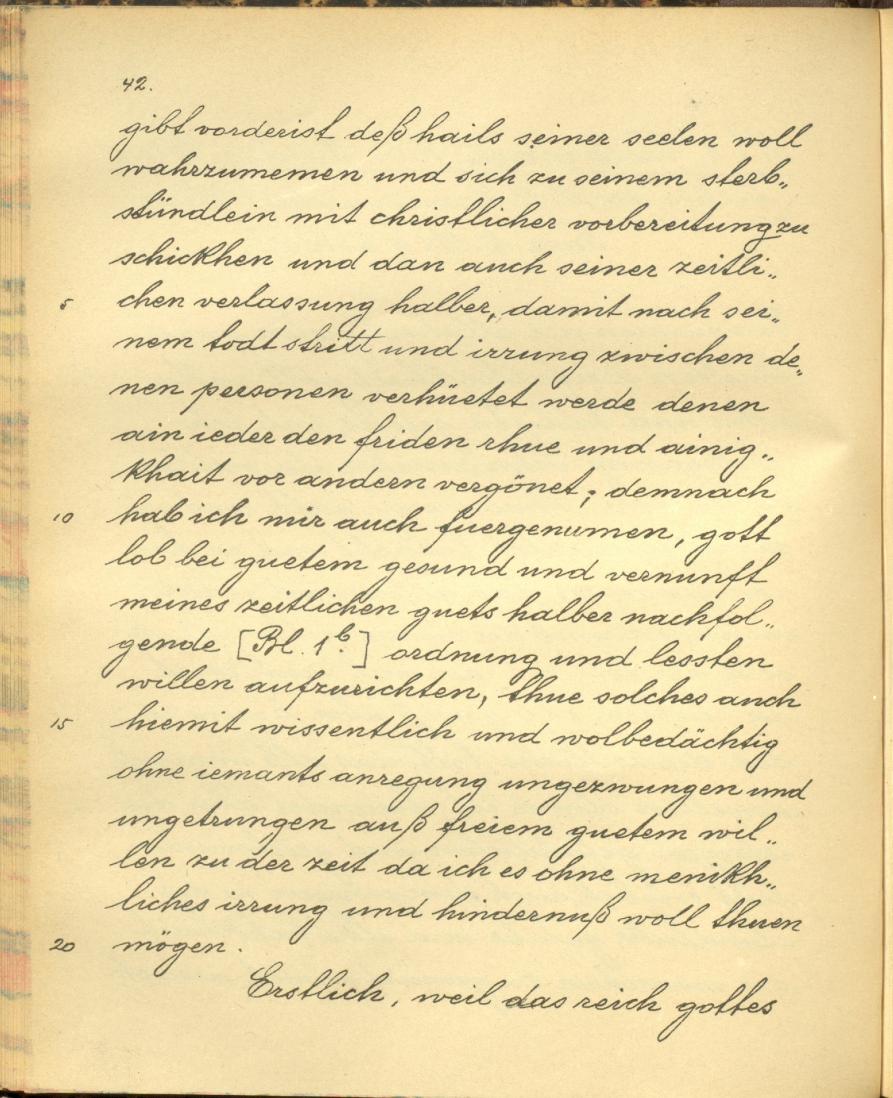 42.
gibt vorderist deß hails seiner seelen woll
wahrzumemen und sich zu seinem sterb„
stündlein mit christlicher vorbereitung zu
schickhen und dan auch seiner zeitli„
5 chen verlassung halber, damit nach sei„
nem todt stritt und irrung zwischen de„
nen personen verhüetet werde denen
ain ieder den friden rhue und ainig„
khait vor andern vergönet; demnach
10 hab ich mir auch fuergenumen, gott
lob bei guetem gesund und vernunft
meines zeitlichen guets halber nachfol„
gende [Bl. 1b.] ordnung und lessten
willen aufzurichten, thue solches auch
15 hiemit wissentlich und wolbedächtig
ohne iemants anregung ungezwungen und
ungetrungen auß freiem guetem wil„
len zu der zeit da ich es ohne menikh„
liches irrung und hindernuß woll thuen
20 mögen.
Erstlich, weil das reich gottes